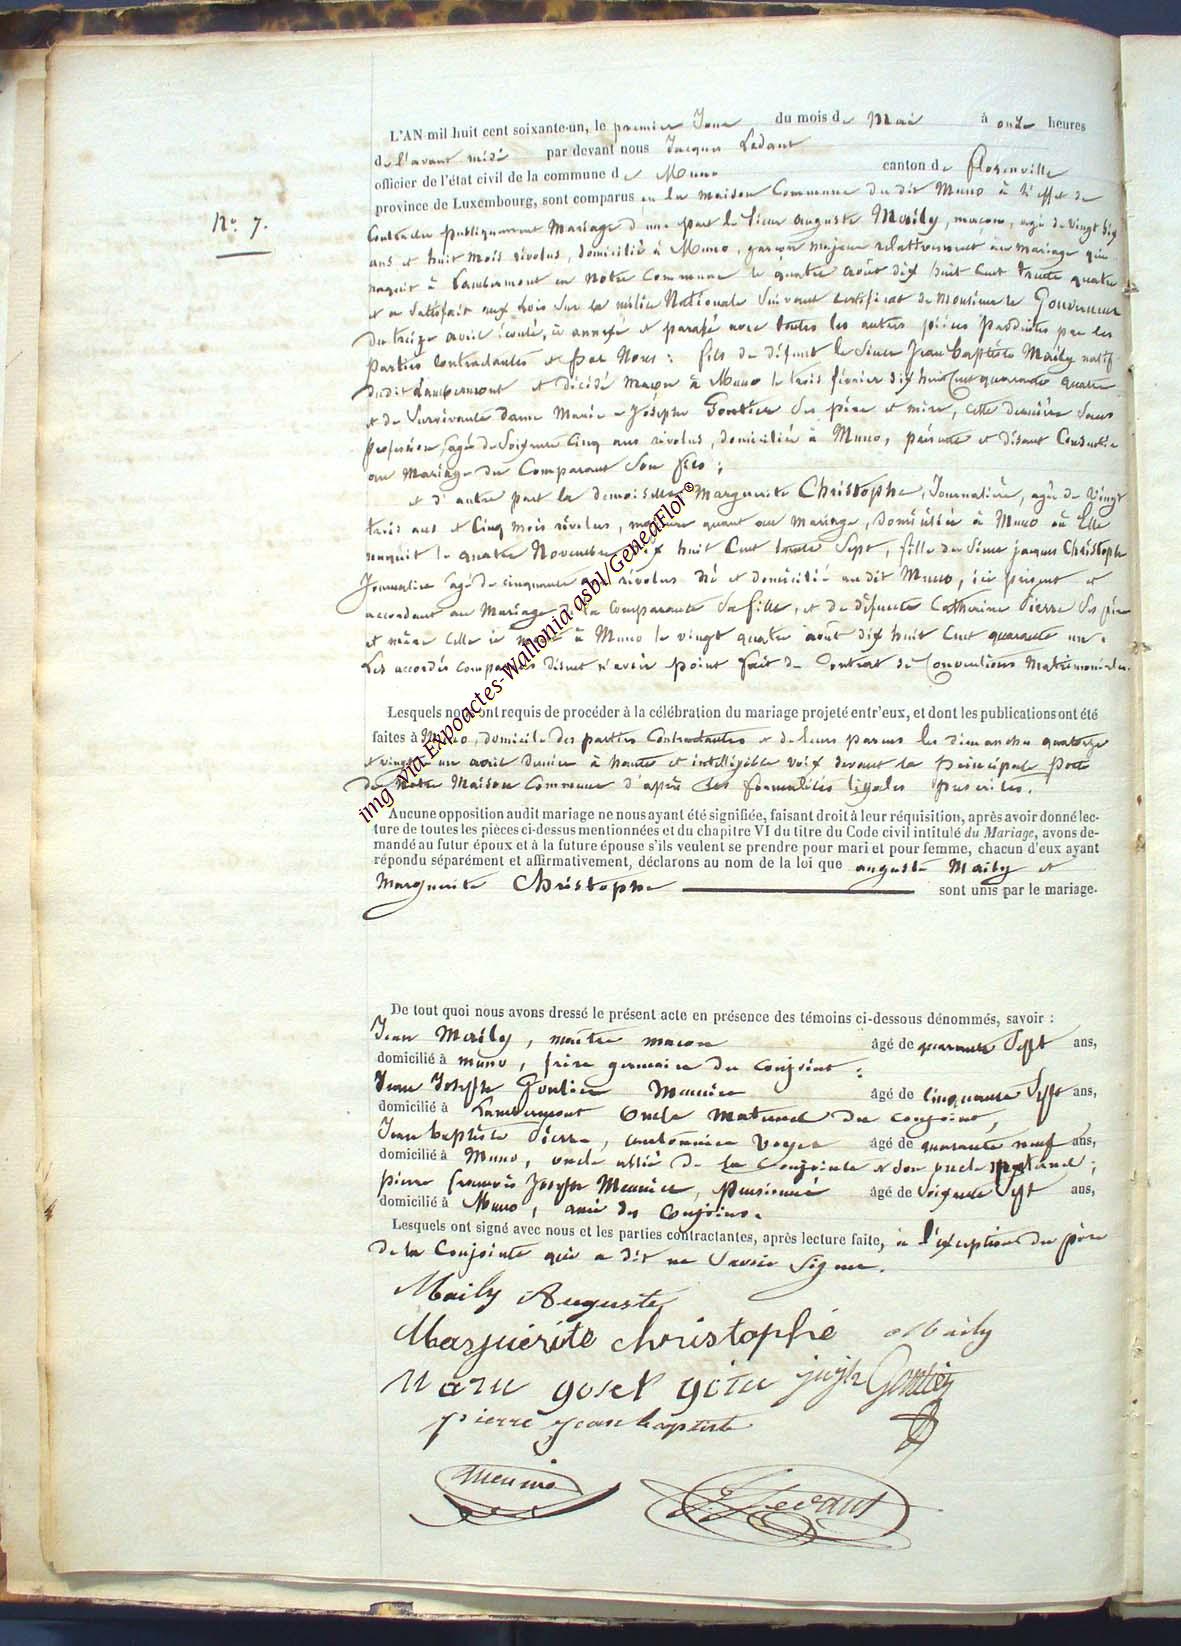 N.° 7.
L'AN mil huit cent soixante-un, le premier Jour du mois de Mai à onze heures
de l'avant midi par devant nous Jacques Ledant
officier de l'état civil de la commune de Muno canton de Florenville
province de Luxembourg, sont comparus en la maison Commune du dit Muno à l'effet de
Contracter publiquement Mariage d'une part le sieur auguste Maily, maçon, agé de vingt six
ans et huit mois révolus, domicilié à Muno, garçon majeur relativement au mariage qui
naquit à Lambermont en Notre Commune le quatre août dix huit Cent trente quatre
et a satisfait aux Lois sur la milice Nationale suivant certificat de Monsieur le Gouverneur
du treize avril écoulé, ci annexé et parafé avec toutes les autres pièces produites par les
parties Contractantes et par Nous : fils de défunt le sieur Jean baptiste Maily natif
dudit Lambermont et décédé maçon à Muno le trois février dix huit Cent quarante quatre
et de Survivante dame Marie Joseph Gontier ses père et mère, cette dernière sans
profession agée de soixante Cinq ans révolus, domiciliée à Muno, présente et disant Consentir
au Mariage du Comparant son fils ;
et d'autre part la demoiselle Marguerite Christophe, Journalière, agée de Vingt
trois ans et Cinq mois révolus, majeure quant au mariage, domiciliée à Muno où Elle
naquit le quatre Novembre dix huit Cent trente Sept, fille du sieur jacques Christophe
Journalier agé de cinquante ans révolus né et domicilié audit Muno, ici présent et
accordant au Mariage de la Comparante sa fille, et de défunte Catherine Pierre ses père
et mère celle ci à Muno le vingt quatre août dix huit Cent quarante un.
Les accordés comparants disent n'avoir point fait de Contrat de Conventions Matrimoniales.
Lesquels nous ont requis de procéder à la célébration du mariage projeté entr'eux, et dont les publications ont été
faites à Muno, domicile des parties Contractantes et de leurs parens les dimanche quatorze
et vingt un avril dernier à haute et intelligible voix devant la principale porte
de Notre Maison Commune d'après les formalités légales prescrites.
Aucune opposition audit mariage ne nous ayant été signifiée, faisant droit à leur réquisition, après avoir donné lec-
ture de toutes les pièces ci-dessus mentionnées et du chapitre VI du titre du Code civil intitulé du Mariage, avons de-
mandé au futur époux et à la future épouse s'ils veulent se prendre pour mari et pour femme, chacun d'eux ayant
répondu séparément et affirmativement, déclarons au nom de la loi que auguste Maily et
Marguerite Christophe sont unis par le mariage.
De tout quoi nous avons dressé le présent acte en présence des témoins ci-dessous dénommés, savoir :
Jean Maily, maître maçon âgé de quarante Sept ans,
domicilié à muno, frère germain du conjoint ;
Jean Joseph Gontier Meunier âgé de Cinquante Sept ans,
domicilié à Lambermont Oncle Maternel du conjoint,
Jean baptiste Pierre, cantonnier Voyer âgé de quarante neuf ans,
domicilié à Muno, oncle de la Conjointe ;
pierre françois Joseph Meunier, Pensionné âgé de soixante Sept ans,
domicilié à Muno, ami des Conjoins.
Lesquels ont signé avec nous et les parties contractantes, après lecture faite, à l'exception du père
de la Conjointe qui a dit ne Savoir Signer.
Maily Auguste
Marguérite christophe Maily
Marie gosef gotie Gontier
pierre jean baptiste
meunier
J. Ledant
img via Expoactes-Wallonia asbl/GeneaFlor©